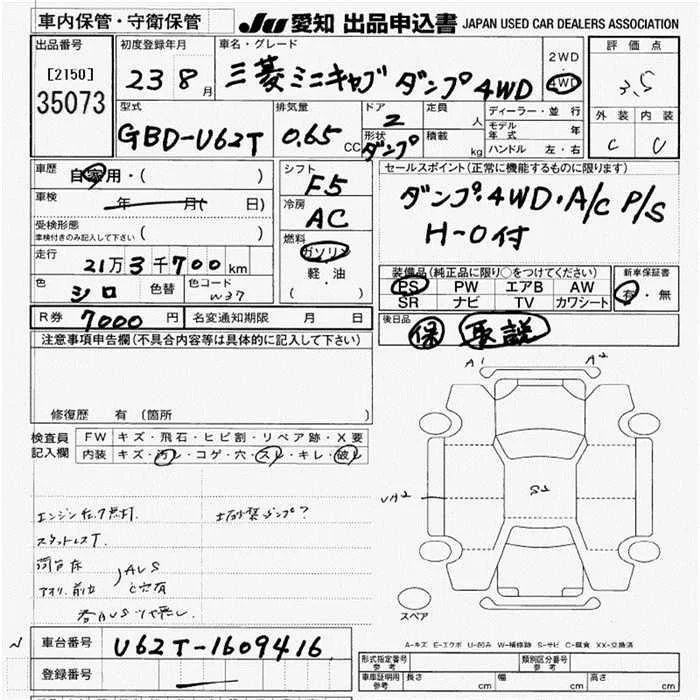 車内保管・守衛保管 JU 愛知 出品申込書 JAPAN USED CAR DEALERS ASSOCIATION
出品番号 初度登録年月 車名・グレード 2WD 評価点
[2150] 23 8月 三菱 ミニキャブ ダンプ 4WD ・ 3.5
35073 4WD
型式 排気量 ドア 定員 ディーラー・並行 外装 内装
GBD-U62T 0.65 CC 2 人 モデル年式 年 C C
形状 積載 ハンドル 左・右
ダンプ kg
車歴 自家用・( ) シフト セールスポイント(正常に機能するものに限ります)
F5
車検 年 月( 日) 冷房 ダンプ・4WD・A/C P/S
受検形態 AC H-0付
車検付きのみ記入して下さい ( )
走行 燃料 装備品(純正品に限り○をつけてください) 新車保証書
21万3千700km ガソリン PS PW エアB AW 有・無
色 シロ 色替 色コード W37 軽・油 SR ナビ TV カワシート
( )
R券 7000 円 名変通知期限 月 日 後日品
保 取説
注意事項申告欄(不具合内容等は具体的に記入して下さい)
A1 A2
修復歴 有 (箇所 )
検査員 FW キズ・飛石・ヒビ割・リペア跡・X要
記入欄 内装 キズ・汚レ・コゲ・穴・スレ・キレ・破レ
S2
エンジン 土砂禁ダンプ?
スタットレスT.
荷台床
アオリ、前立 )AUS
C穴有
スペア
A-キズ E-エクボ U-凹み W-補修跡 S-サビ C-腐食 XX-交換済
車台番号 U62T-1609416
登録番号
形式指定番号 参考 類別区分番号 参考
車庫証明用 参考 長さ cm 幅 cm 高さ cm